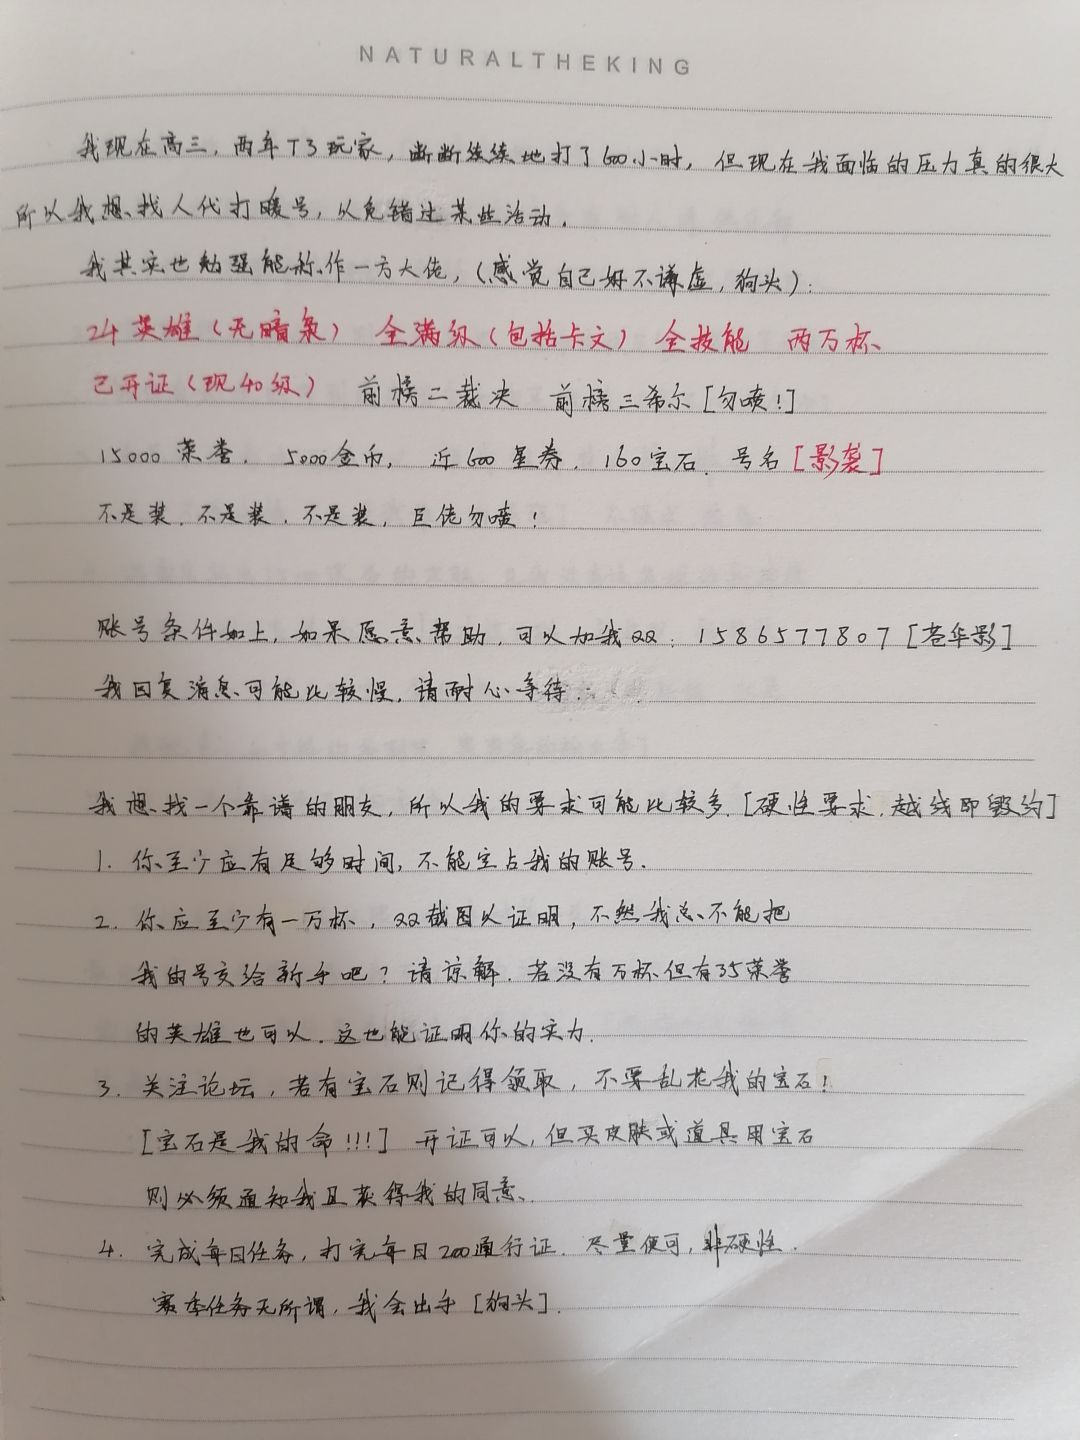 NATURALTHEKING
我现在高三，两年T3玩家，断断续续地打了600小时，但现在我面临的压力真的很大
所以我想找人代打暖号，以免错过某些活动．
我其实也勉强能称作一方大佬，（感觉自己好不谦虚，狗头）：
24英雄（无暗枭） 全满级（包括卡文） 全技能 两万杯
已开证（现40级） 前榜二裁决 前榜三希尔［勿喷！］
15000荣誉． 5000金币， 近600星券． 160宝石． 号名［影袭］
不是装．不是装．不是装，巨佬勿喷！
账号条件如上，如果愿意帮助，可以加我QQ：1586577807［苍华影］
我回复消息可能比较慢，请耐心等待．
我想找一个靠谱的朋友，所以我的要求可能比较多．［硬性要求．越线即毁约］
1．你至少应有足够时间，不能空占我的账号．
2．你应至少有一万杯，QQ截图以证明，不然我总不能把
我的号交给新手吧？请谅解．若没有万杯但有35荣誉
的英雄也可以．这也能证明你的实力．
3．关注论坛，若有宝石则记得领取，不要乱花我的宝石！
［宝石是我的命！！！］开证可以，但买皮肤或道具用宝石
则必须通知我且获得我的同意．
4．完成每日任务，打完每日200通行证．尽量便可，非硬性．
赛季任务无所谓，我会出手［狗头］．